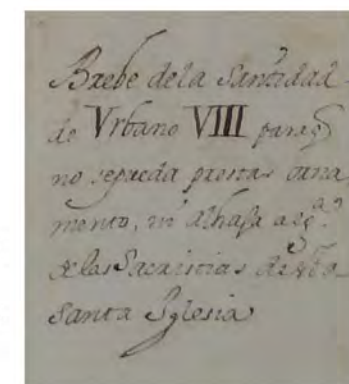 Brebe dela Santidad
de Vrbano VIII paraq̃
no sepueda prestar orna
mento, ni alhaja alg.ª
delas Sacristias de nr̃a
Santa Yglesia